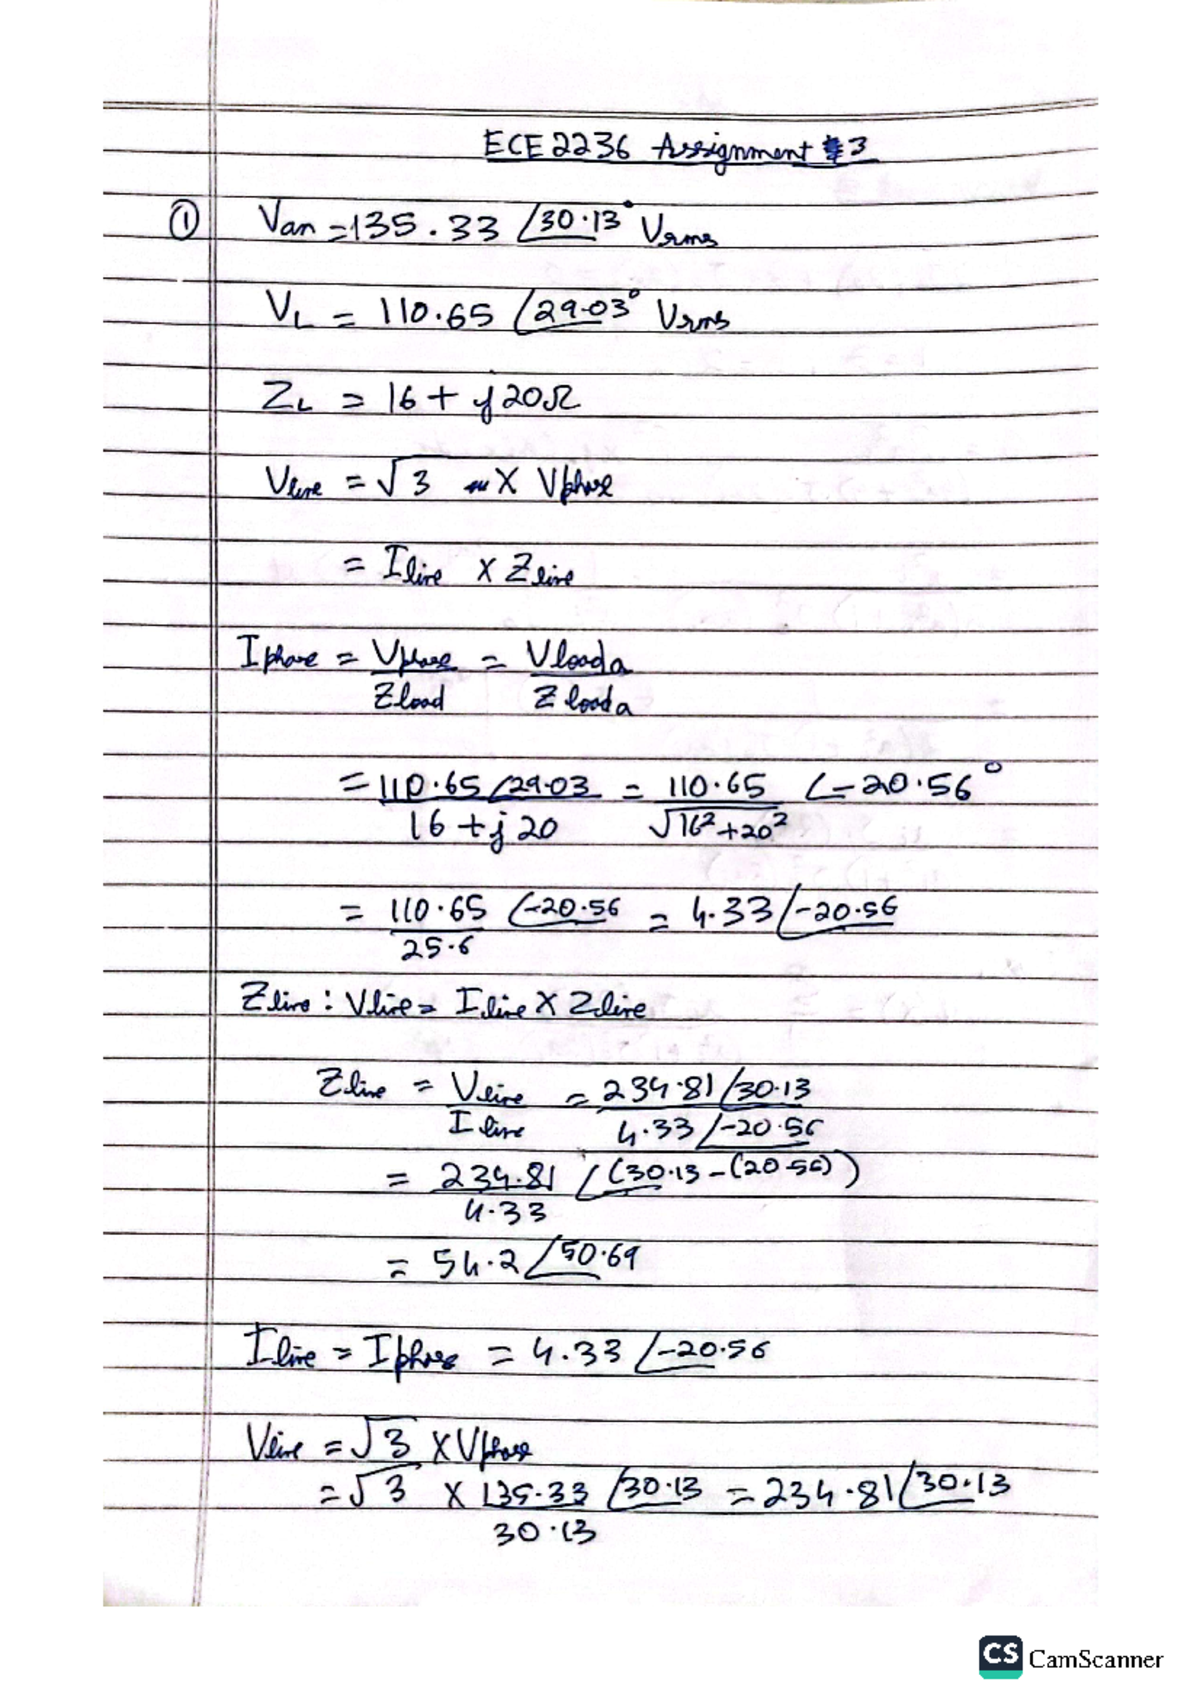 ECE2236 Assignment #3
① Van = 135.33 ∠30.13° Vrms
VL = 110.65 ∠29.03° Vrms
ZL = 16 + j20Ω
Vline = √3 X Vphase
= Iline X Zline
Iphase = Vphase = Vload a
Zload Zload a
= 110.65 ∠29.03 = 110.65 ∠-20.56°
16 + j20 √16²+20²
= 110.65 ∠-20.56 = 4.33 ∠-20.56
25.6
Zline : Vline = Iline X Zline
Zline = Vline = 234.81 ∠30.13
Iline 4.33 ∠-20.56
= 234.81 ∠(30.13-(20.56))
4.33
= 54.2 ∠50.69
Iline = Iphase = 4.33 ∠-20.56
Vline = √3 X Vphase
= √3 X 135.33 ∠30.13 = 234.81 ∠30.13
30.13
CS CamScanner